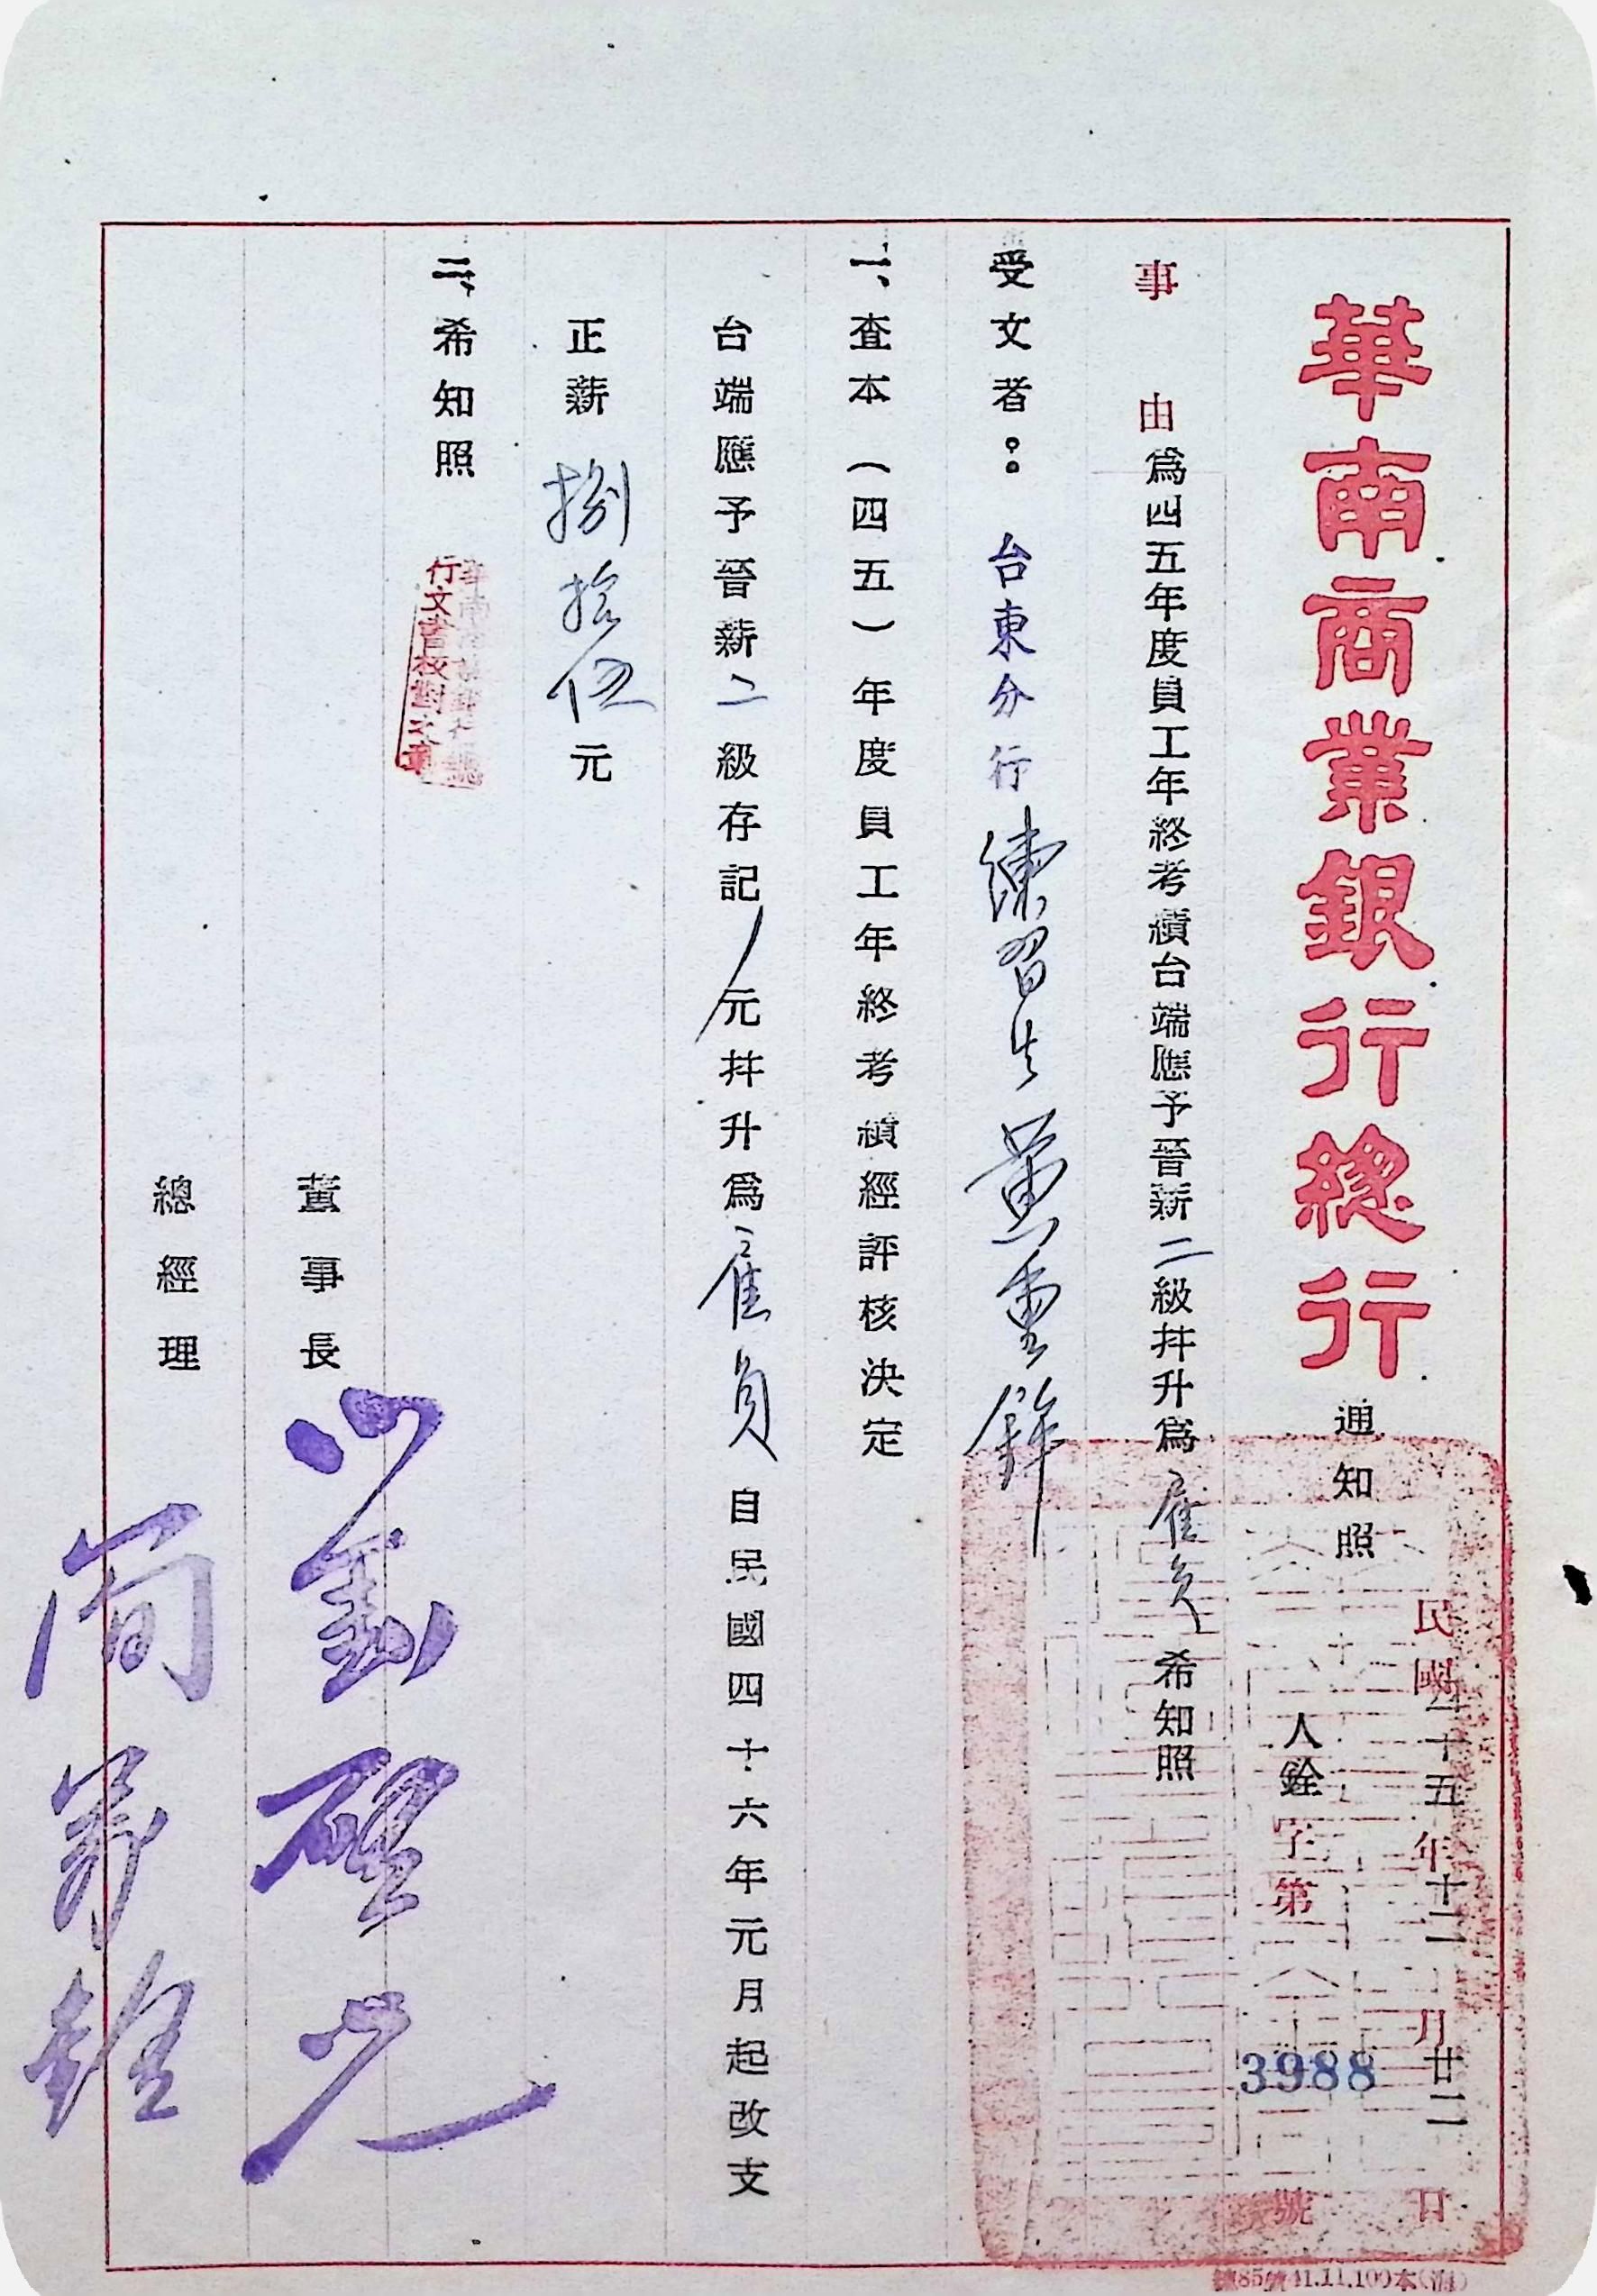 華南商業銀行總行 通知照
民國四十五年十二月廿二日
人銓字第3988號
事由 為四五年度員工年終考績台端應予晉薪二級拼升為雇員希知照
受文者：台東分行 練習生 黃重鋒
一、查本(四五)年度員工年終考績經評核決定
台端應予晉薪二級存記/元拼升為雇員自民國四十六年元月起改支
正薪捌拾伍元
二、希知照
行文書校對之章
董事長 劉啓光
總經理
總85號41.11.100本(海)